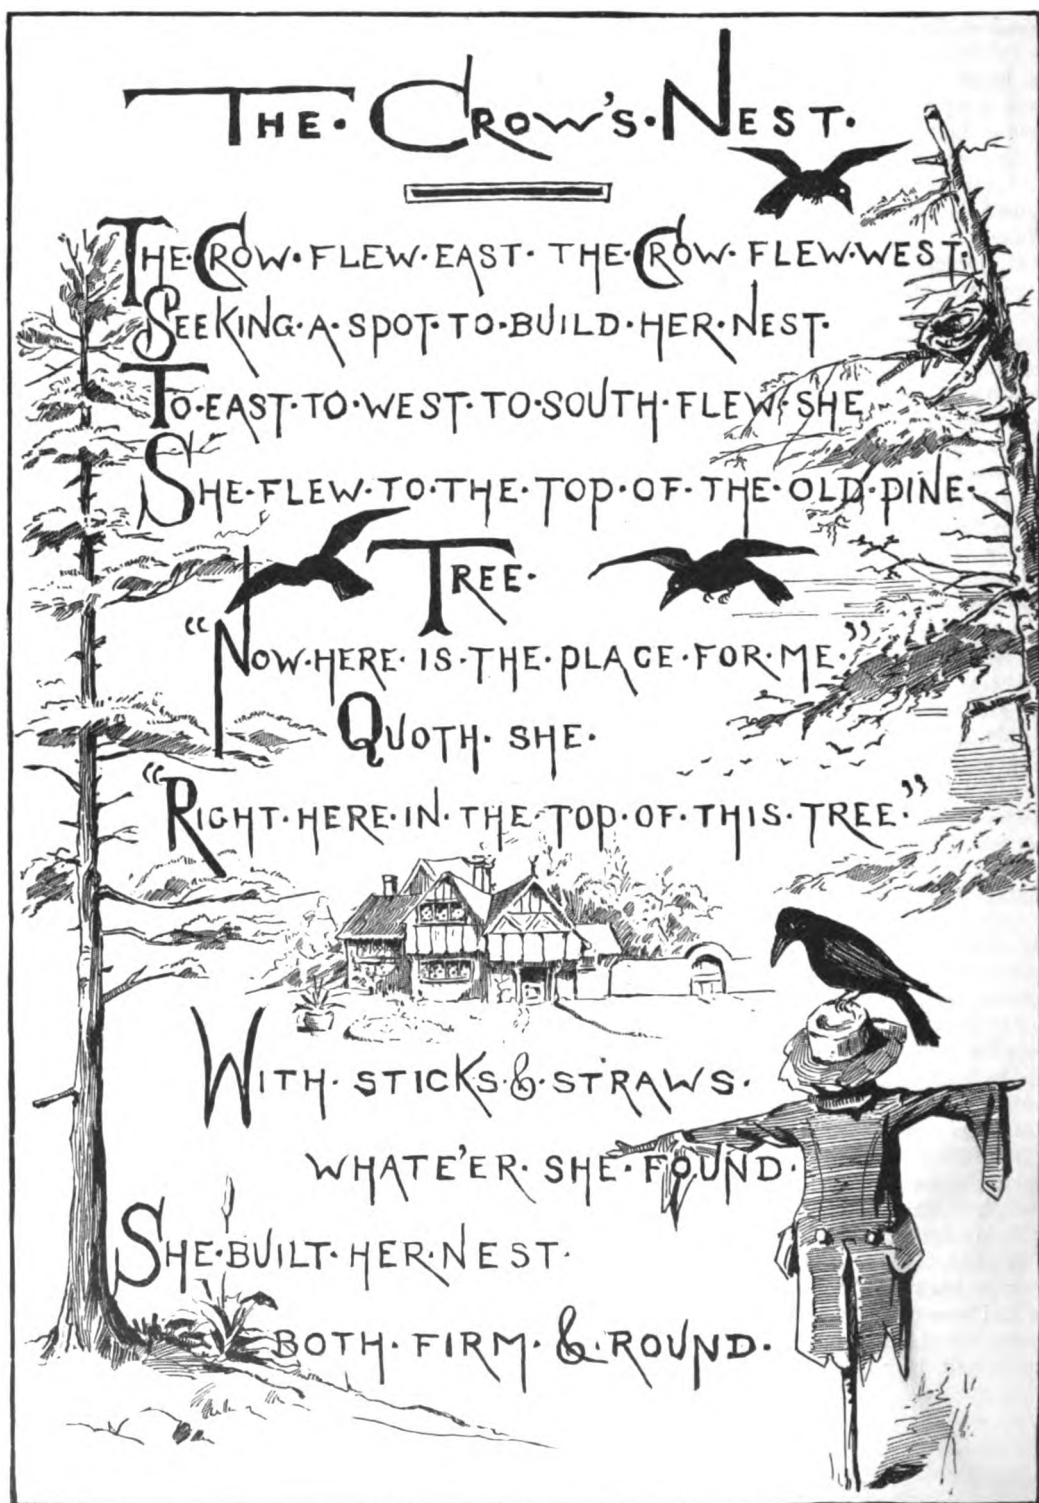 THE · CROW'S · NEST ·
THE · CROW · FLEW · EAST · THE · CROW · FLEW · WEST ·
SEEKING · A · SPOT · TO · BUILD · HER · NEST ·
TO · EAST · TO · WEST · TO · SOUTH · FLEW · SHE
SHE · FLEW · TO · THE · TOP · OF · THE · OLD · PINE ·
TREE ·
“NOW · HERE · IS · THE · PLACE · FOR · ME ·”
QUOTH · SHE ·
“RIGHT · HERE · IN · THE · TOP · OF · THIS · TREE ·”
WITH · STICKS · & · STRAWS ·
WHATE'ER · SHE · FOUND ·
SHE · BUILT · HER · NEST ·
BOTH · FIRM · & · ROUND ·